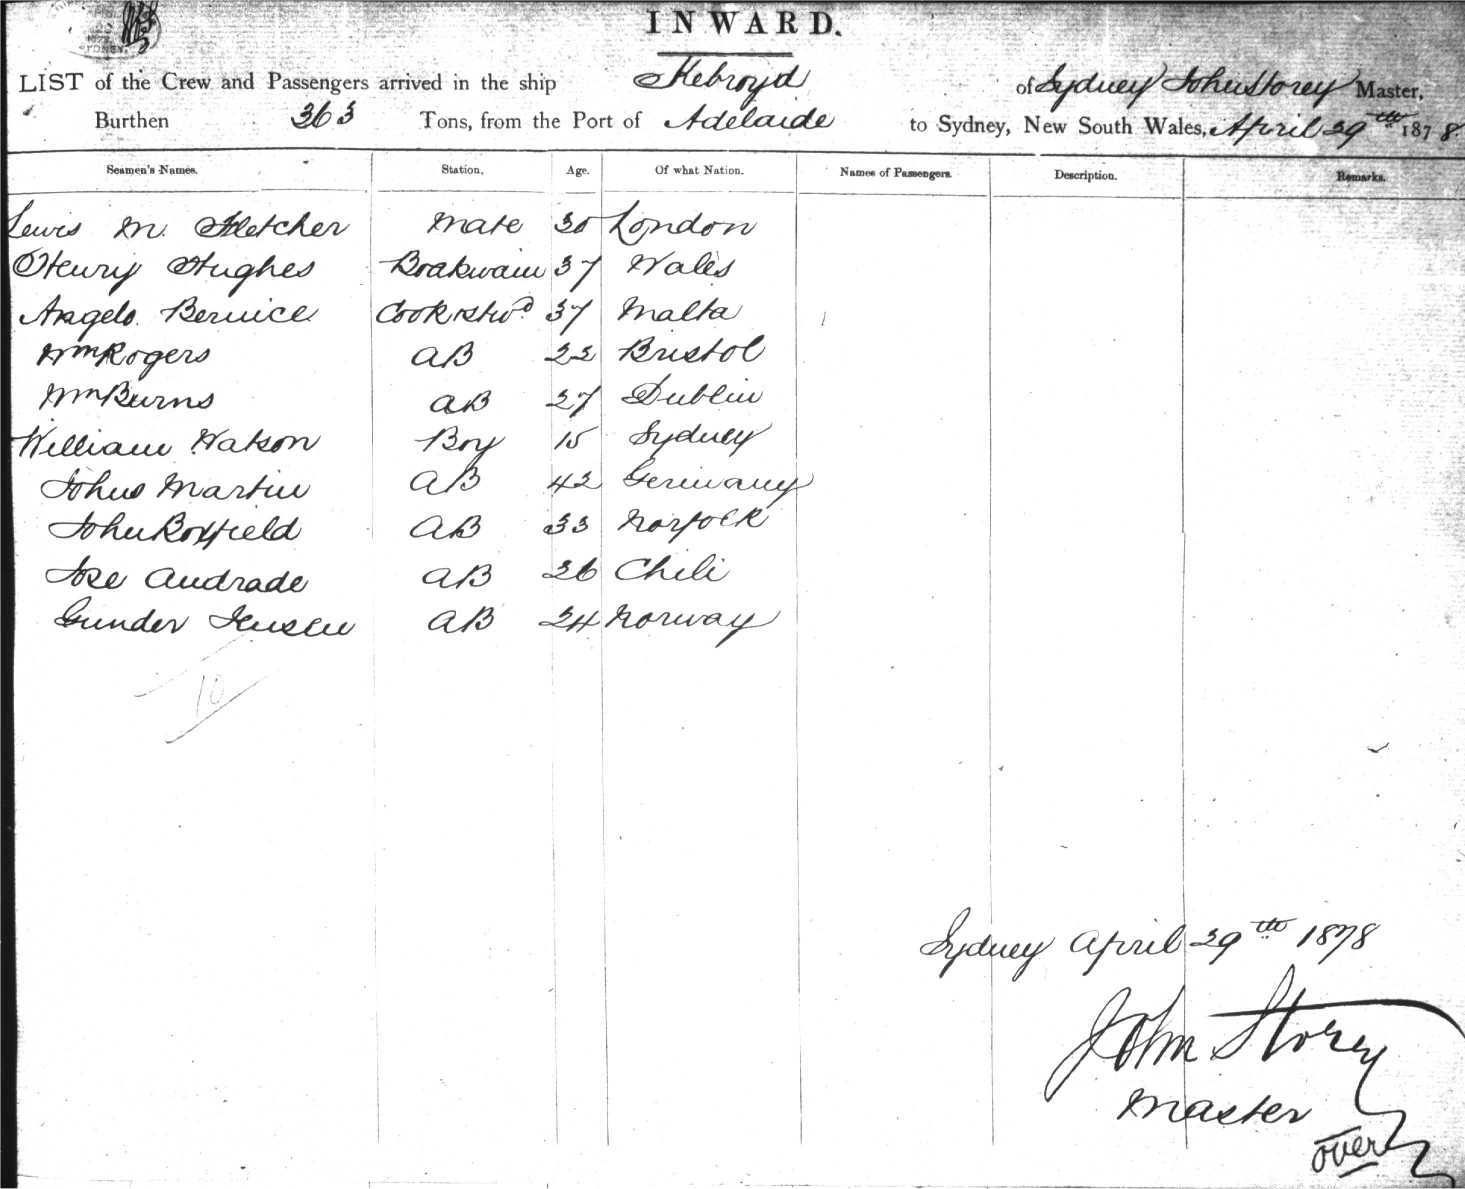 INWARD.
LIST of the Crew and Passengers arrived in the ship Kebroyd of Sydney John Storey Master,
Burthen 363 Tons, from the Port of Adelaide to Sydney, New South Wales, April 29th 1878.
Seamen's Names. Station. Age. Of what Nation. Names of Passengers. Description. Remarks.
Lewis M. Fletcher Mate 30 London
Henry Hughes Boatswain 37 Wales
Angelo Bernice Cook & Stwd 37 Malta
Wm Rogers AB 22 Bristol
Wm Burns AB 27 Dublin
William Watson Boy 15 Sydney
John Martin AB 42 Germany
John Boxfield AB 33 Norfolk
Jose Andrade AB 26 Chili
Gunder Jensen AB 24 Norway
10
Sydney April 29th 1878
John Storey
Master
over